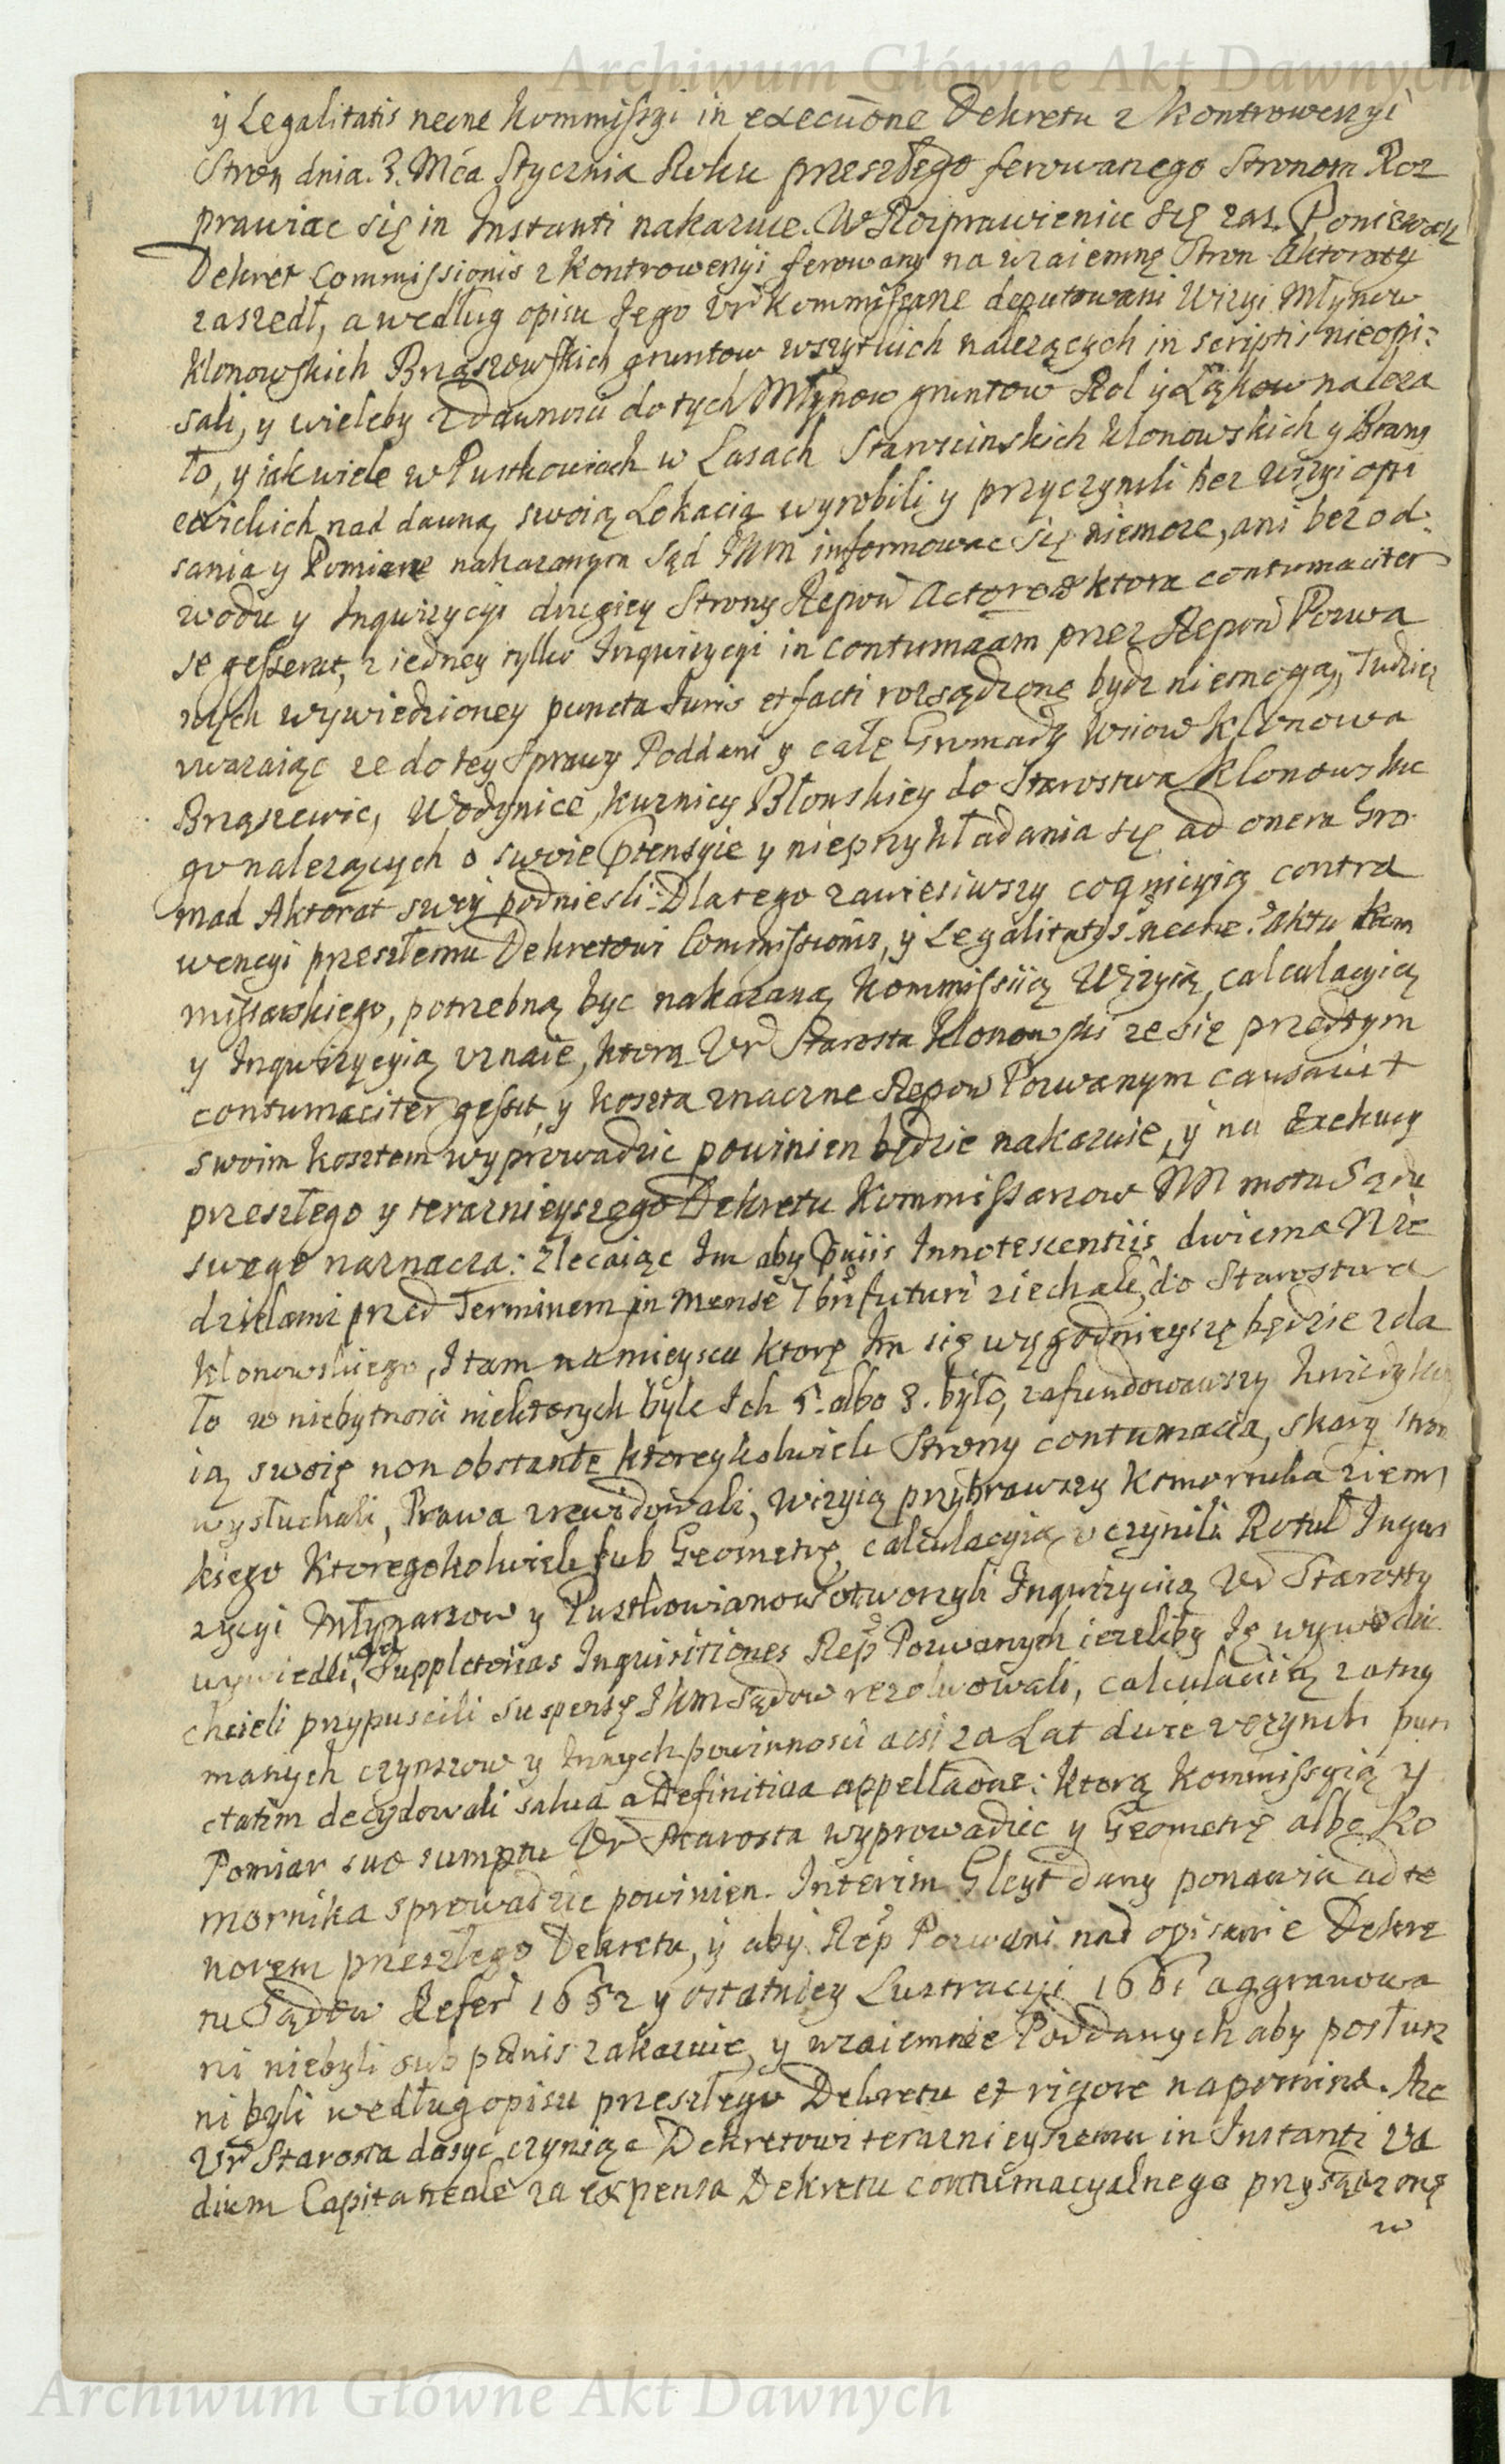 Archiwum Główne Akt Dawnych
y Legalitatis necne Kommissyi in execuōne Dekretu z Kontrowersyi
Stron dnia. 3. Mca Stycznia Roku przeszłego ferowanego Stronom Roz
prawiac się in Instanti nakazuie. W Rozprawieniu się zas. Poniewasz
Dekret Commissionis z Kontrowersyi ferowany na wzaiemnę Stron Aktoraty
zaszedł, a według opisu Jego Ur Kommissarze deputowani Wizyi Młynow
Klonowskich Brąszewskich gruntow wszytkich należących in scriptis nieopi:
sali, y wieleby z dawnosci do tych Młynow gruntow Rol y Łąkow należa
ło, y iak wiele w Pustkowiach w Lasach Starościnskich Klonowskich y Brąsz
ewickich nad dawną swoią Lokacią wyrobili y przyczynili bez wizyi opi
sania y Pomiaru nakazanym Sąd JKM informowac się niemoze, ani bez od:
wodu y Inquizycyi drugiey Strony Repow Actorow ktora contumaciter
se gesserat, z iedney tylko Inquizycyi in contumaciam przez Repow Pozwa
nych wywiedzioney puncta Juris et facti rozsądzonę bydz niemogą, Tudzież
uwazaiąc ze do tey Sprawy Poddani y całę Gromady Wsiow Klonowa
Brąszewic, Wodynice, Kuznicy Błonskiey do Starostwa Klonowskie
go nalezących o swoie Ptensyie y nieprzykładania się ad onera Gro
mad Aktorat swoy podniesli: Dlatego zawiesiwszy cognicyią contra
wencyi przeszłemu Dekretowi Commissionis, y Legalitatis necne Aktu Kom
missarskiego, potrzebną byc nakazaną Kommissiią Wizyią, calculacyią
y Inquizycyią uznaie, ktorą Ur Starosta Klonowski ze się przedtym
contumaciter gessit, y koszta znaczne Repow Pozwanym causavit
swoim kosztem wyprowadzic powinien będzie nakazuie, y na Exekucy
przeszłego y teraznieyszego Dekretu Kommissarzow NN motu Sądu
swego naznacza: Zlecaiąc Im aby pviis Innotescentiis dwiema Nie
dzielami przed Terminem in Mense 7bri futuri ziechali do Starostwa
Klonowskiego, I tam na mieyscu ktorę Im się wygodnieyszę będzie zda
ło w niebytnosci niektorych byle Ich 5. albo 3. było, zafundowawszy Juridykcy
ią swoię non obstante ktoreykolwiek Strony contumacią, skarg Stron
wysłuchali, Prawa zrewidowali, Wizyią przybrawszy Komornika ziems
kiego Ktoregokolwiek sub Geometrę, calculacyią uczynili Rotuł Inqui
zycyi Młynarzow y Pustkowianow otworzyli Inquizycią Ur Starosty
wywiedli, ad Suppletorias Inquisitiones Rep Pozwanych iezeliby Ię wywodzic
chcieli przypuscili suspensę JKM Sądow rezolwowali, calculacią zatrzy
manych czynszow y Innych powinnosci acsi za Lat dwie uczynili pun
ctatim decydowali salva a Definitiva appellaōne: Ktorą Kommissyią y
Pomiar suo sumptu Ur Starosta wyprowadzic y Geometrę albo Ko
mornika sprowadzic powinien. Interim Gleyt dany ponawia ad te
norem przeszłego Dekretu, y aby Rep Pozwani nad opisanie Dekre
tu Sądow Refer 1652 y ostatniey Lustracyi 1661 aggrauowa
ni niebyli sub pœnis zakazuie, y wzaiemnie Poddanych aby posłusz
ni byli według opisu przeszłego Dekretu et rigore napomina. Ze
Ur Starosta dosyc czyniąc Dekretowi teraznieyszemu in Instanti Va
dium Capitaneale za expensa Dekretu contumacyalnego przysądzonę
w
Archiwum Główne Akt Dawnych